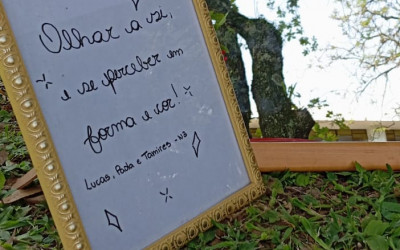 Olhar a si,
e se perceber em
forma e cor!
Lucas, Paola e Tamires - N3